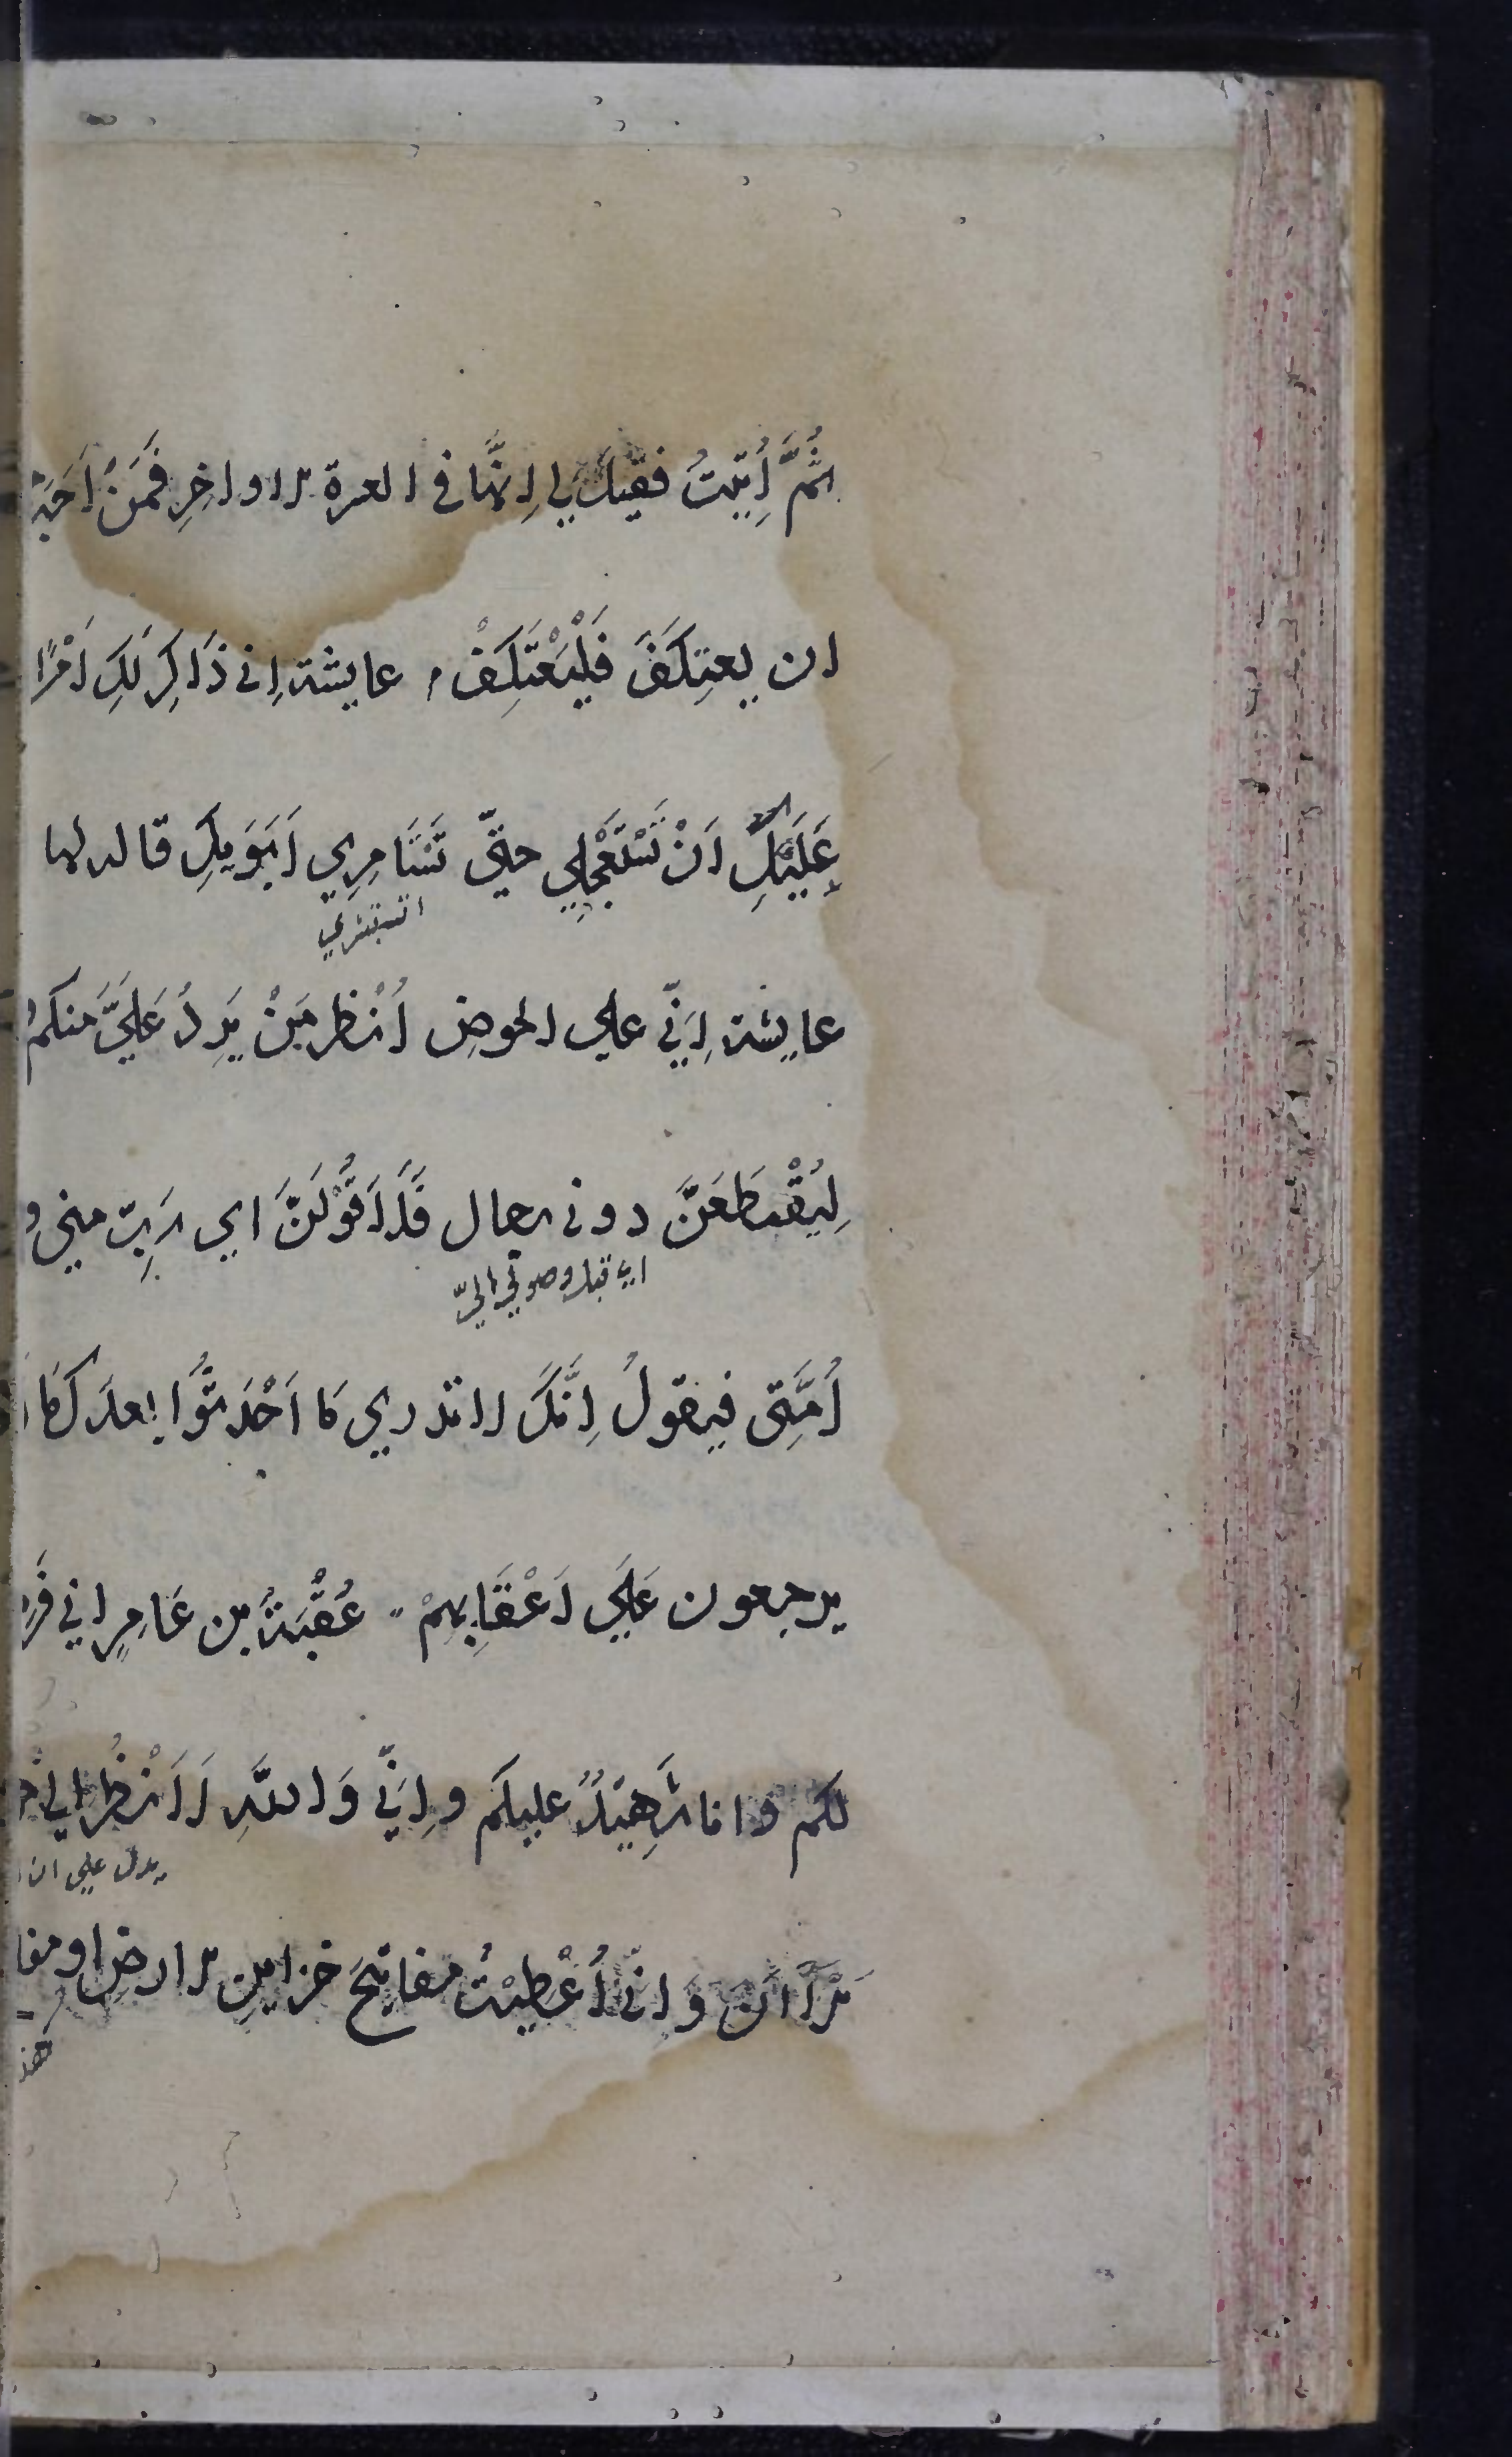 ثُمَّ أُتِيتُ فقيلَ لي اِنَّها في العشرة الاواخِرِ فَمَنْ اَحَبَّ
ان يعتِكَفَ فَلْيَعْتَكِفْ، عايشة اِني ذَاكِرٌ لَكِ اَمْرًا
عَلَيْكِ اَنْ تَسْتَعْجِلِي حتّي تَسْتَامِرِي اَبَوَيكِ قاله لها
اي تستشيري
عايشة اِنّي علي الحوضِ اَنْظر مَنْ يَرِدُ عَلَيَّ منكم
لِيُقْتَطَعَنَّ دوني رجال فَلَاَقُولَنَّ اي رَبِّ مني و
اي قبل وصولي اليّ
اُمَّتِي فيقولُ اِنَّكَ لا تدري مَا اَحْدَثُوا بعدكَ مَا
يرجعون عَلَي اَعْقَابِهِمْ ، عُقْبَةُ بن عَامِرٍ اني فَرَ
لكم وانا شَهِيدٌ عليكم واِنّي وَاللهِ لَاَنْظُرُ الي
يدل علي ان
الْآنَ وَانّي اُعْطِيْتُ مفاتِيحَ خزاينِ الارضِ او مفا
هذ